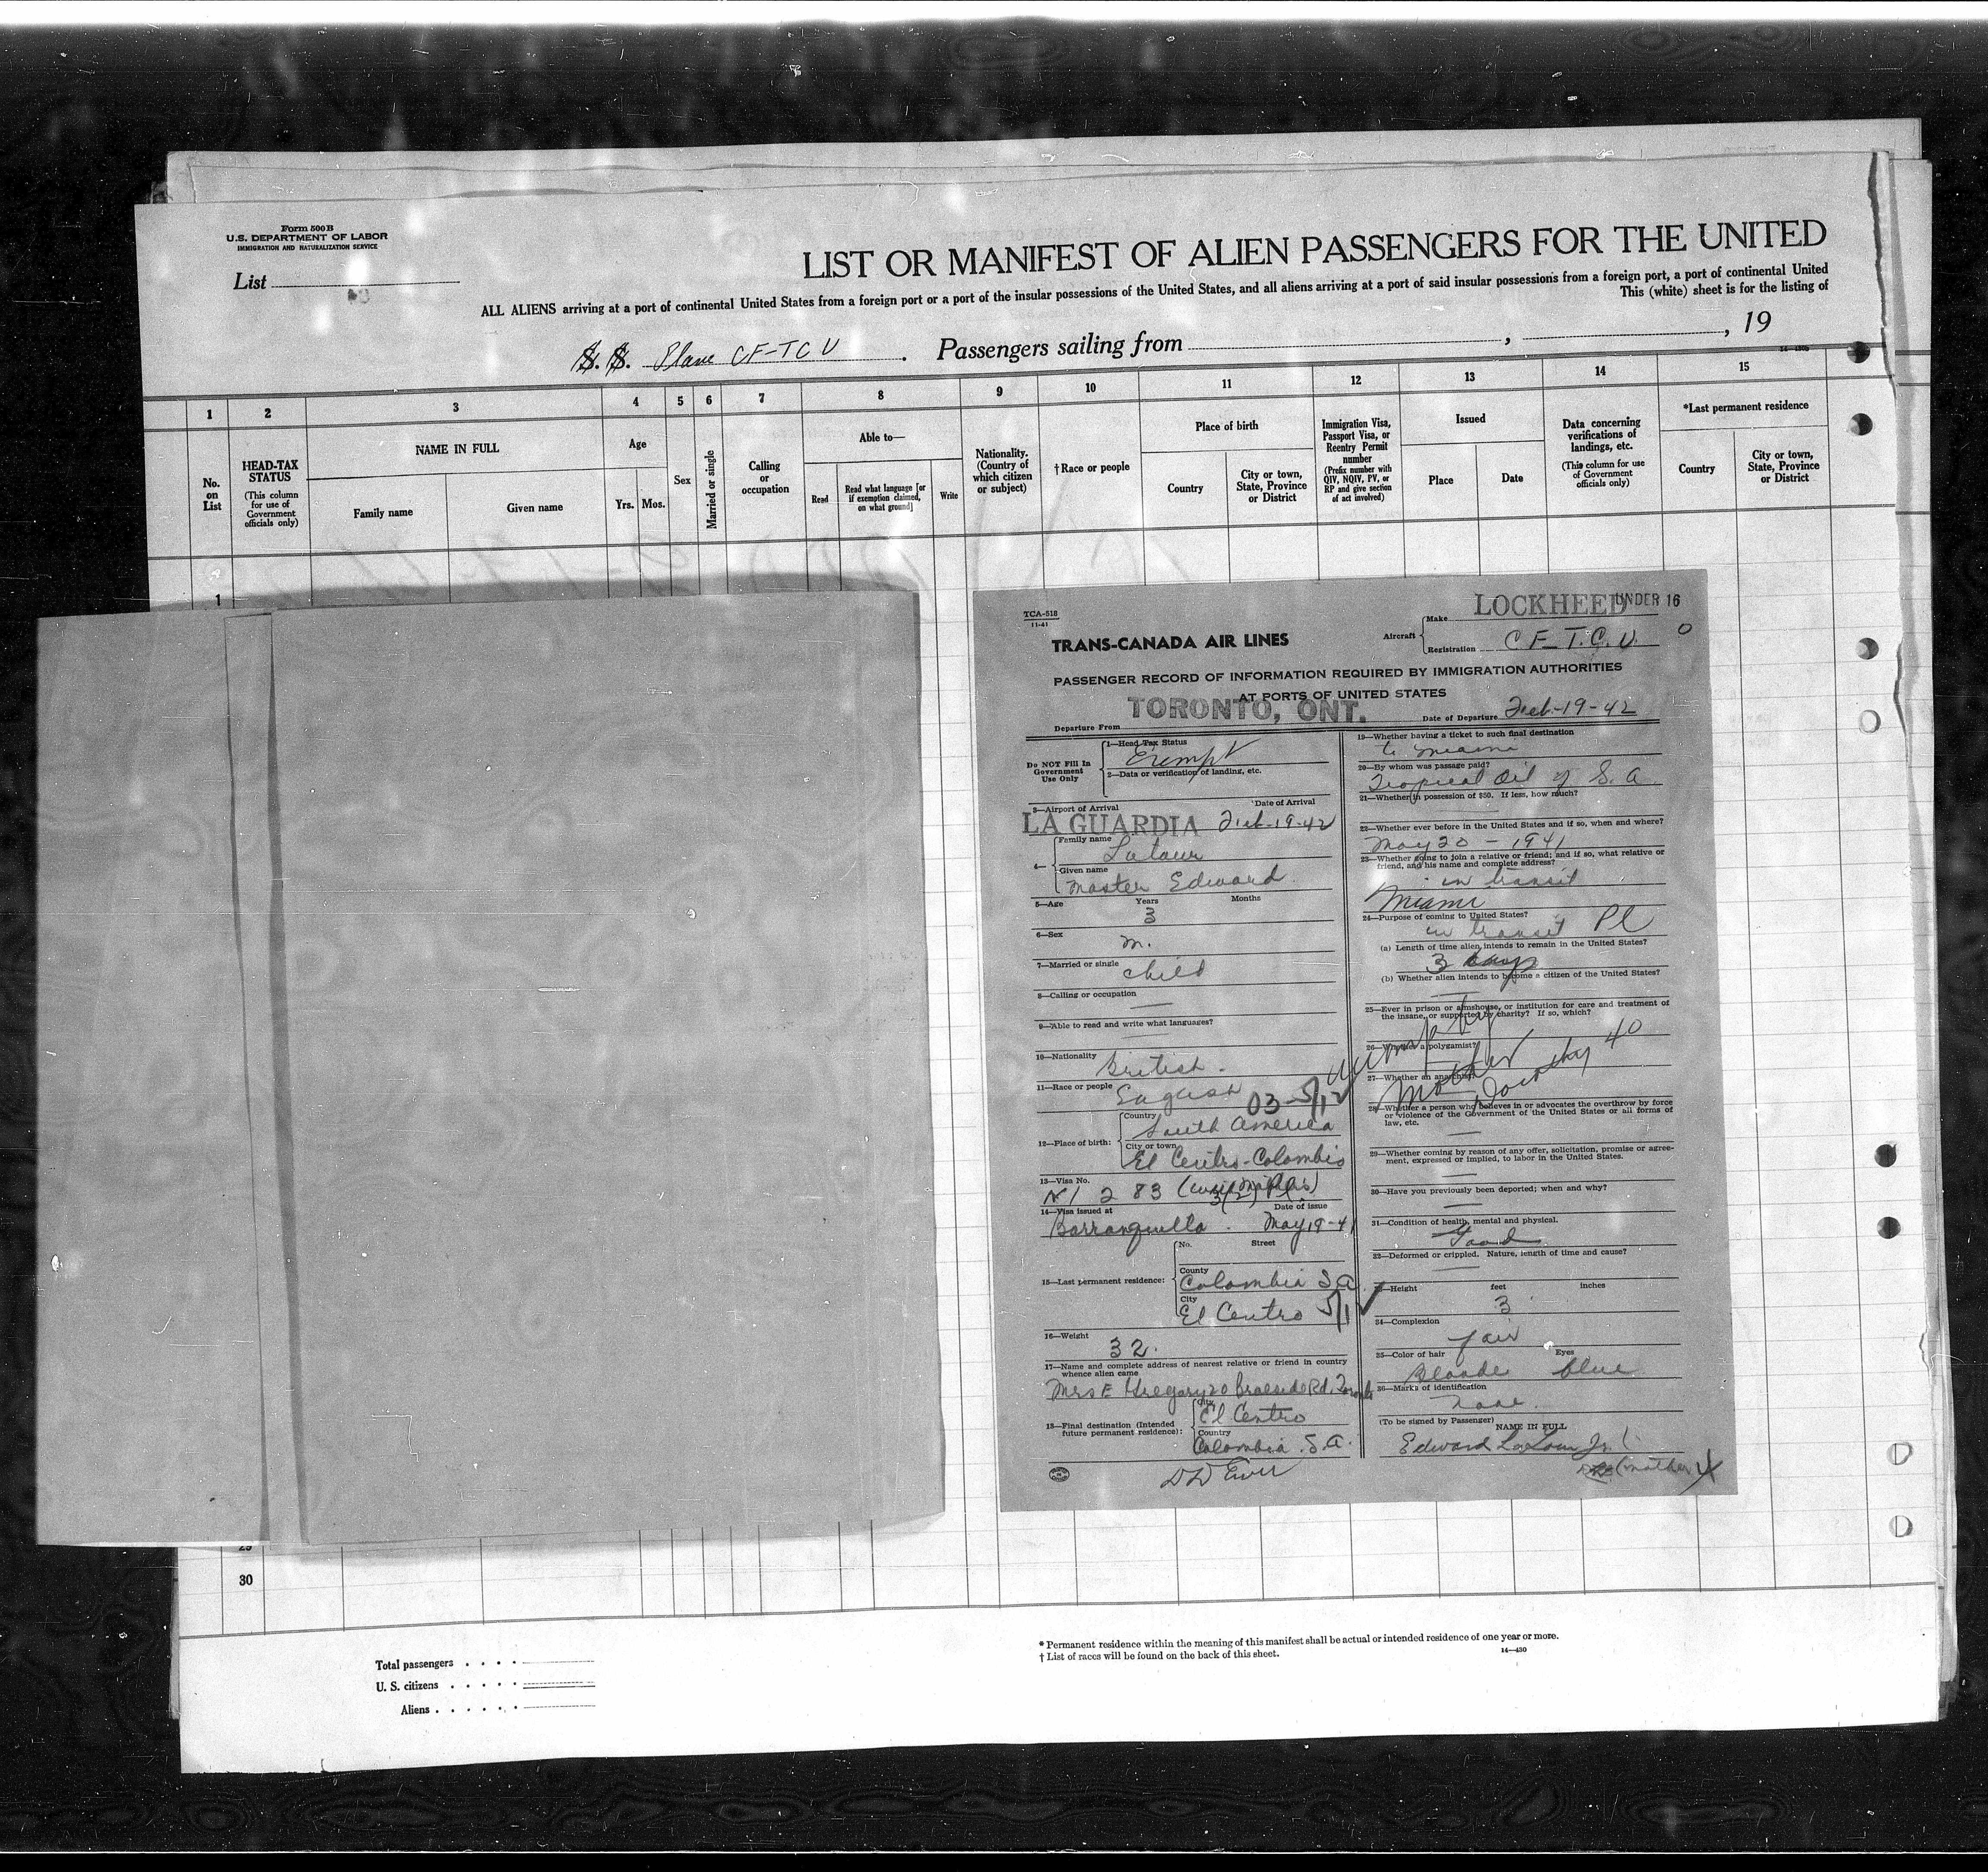 Form 500B
U.S. DEPARTMENT OF LABOR
IMMIGRATION AND NATURALIZATION SERVICE
List
LIST OR MANIFEST OF ALIEN PASSENGERS FOR THE UNITED
ALL ALIENS arriving at a port of continental United States from a foreign port or a port of the insular possessions of the United States, and all aliens arriving at a port of said insular possessions from a foreign port, a port of continental United
This (white) sheet is for the listing of
S. S. Plane CF-TCU . Passengers sailing from , , 19
14—430b
1 2 3 4 5 6 7 8 9 10 11 12 13 14 15
No. on List
HEAD-TAX STATUS
(This column for use of Government officials only)
NAME IN FULL
Family name
Given name
Age
Yrs. Mos.
Sex
Married or single
Calling or occupation
Able to—
Read
Read what language [or if exemption claimed, on what ground]
Write
Nationality. (Country of which citizen or subject)
†Race or people
Place of birth
Country
City or town, State, Province or District
Immigration Visa, Passport Visa, or Reentry Permit number
(Prefix number with QIV, NQIV, PV, or RP and give section of act involved)
Issued
Place
Date
Data concerning verifications of landings, etc.
(This column for use of Government officials only)
*Last permanent residence
Country
City or town, State, Province or District
1
TCA-518
11-41
TRANS-CANADA AIR LINES
Aircraft
Make LOCKHEED
UNDER 16
Registration CF-T.C.U. 0
PASSENGER RECORD OF INFORMATION REQUIRED BY IMMIGRATION AUTHORITIES
AT PORTS OF UNITED STATES
Departure From TORONTO, ONT.
Date of Departure Feb-19-42
Do NOT Fill In Government Use Only
1—Head Tax Status
Exempt
2—Data or verification of landing, etc.
3—Airport of Arrival Date of Arrival
LA GUARDIA Feb-19-42
4— Family name
Latour
Given name
Master Edward
5—Age Years Months
3
6—Sex
m.
7—Married or single
child
8—Calling or occupation
9—Able to read and write what languages?
10—Nationality
British.
11—Race or people
English 03-5/12
12—Place of birth:
Country
South America
City or town
El Centro-Colombia
13—Visa No.
283
14—Visa issued at Date of issue
Barranquilla. May 19-41
15—Last permanent residence:
No. Street
County
Colombia S.A.
City
El Centro
16—Weight
32.
17—Name and complete address of nearest relative or friend in country whence alien came
Mrs E Gregory 20 Braeside Rd, Toronto
18—Final destination (Intended future permanent residence):
City
El Centro
Country
Colombia. S.A.
19—Whether having a ticket to such final destination
to Miami
20—By whom was passage paid?
Tropical Oil of S.A.
21—Whether in possession of $50. If less, how much?
22—Whether ever before in the United States and if so, when and where?
May 20 - 1941
23—Whether going to join a relative or friend; and if so, what relative or friend, and his name and complete address?
in transit
Miami
24—Purpose of coming to United States?
in transit Pl
(a) Length of time alien intends to remain in the United States?
3 days
(b) Whether alien intends to become a citizen of the United States?
25—Ever in prison or almshouse, or institution for care and treatment of the insane, or supported by charity? If so, which?
26—Whether a polygamist?
27—Whether an anarchist?
mother 40
28—Whether a person who believes in or advocates the overthrow by force or violence of the Government of the United States or all forms of law, etc.
29—Whether coming by reason of any offer, solicitation, promise or agreement, expressed or implied, to labor in the United States.
30—Have you previously been deported; when and why?
31—Condition of health, mental and physical.
Good
32—Deformed or crippled. Nature, length of time and cause?
33—Height feet inches
3
34—Complexion
fair
35—Color of hair Eyes
Blonde blue
36—Marks of identification
None.
(To be signed by Passenger)
NAME IN FULL
Edward LaTour Jr.
(mother)
29
30
Total passengers
U. S. citizens
Aliens
* Permanent residence within the meaning of this manifest shall be actual or intended residence of one year or more.
† List of races will be found on the back of this sheet.
14—430